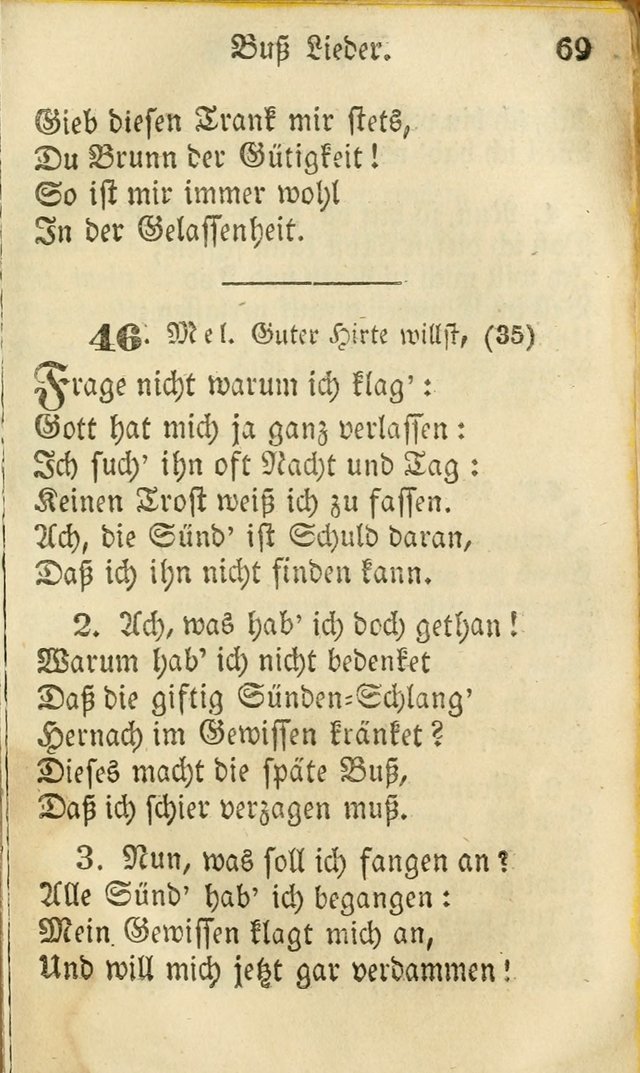 Buß Lieder. 69
Gieb diesen Trank mir stets,
Du Brunn der Gütigkeit!
So ist mir immer wohl
In der Gelassenheit.
46. Mel. Guter Hirte willst, (35)
Frage nicht warum ich klag':
Gott hat mich ja ganz verlassen:
Ich such' ihn oft Nacht und Tag:
Keinen Trost weiß ich zu fassen.
Ach, die Sünd' ist Schuld daran,
Daß ich ihn nicht finden kann.
2. Ach, was hab' ich doch gethan!
Warum hab' ich nicht bedenket
Daß die giftig Sünden-Schlang'
Hernach im Gewissen kränket?
Dieses macht die späte Buß,
Daß ich schier verzagen muß.
3. Nun, was soll ich fangen an?
Alle Sünd' hab' ich begangen:
Mein Gewissen klagt mich an,
Und will mich jetzt gar verdammen!